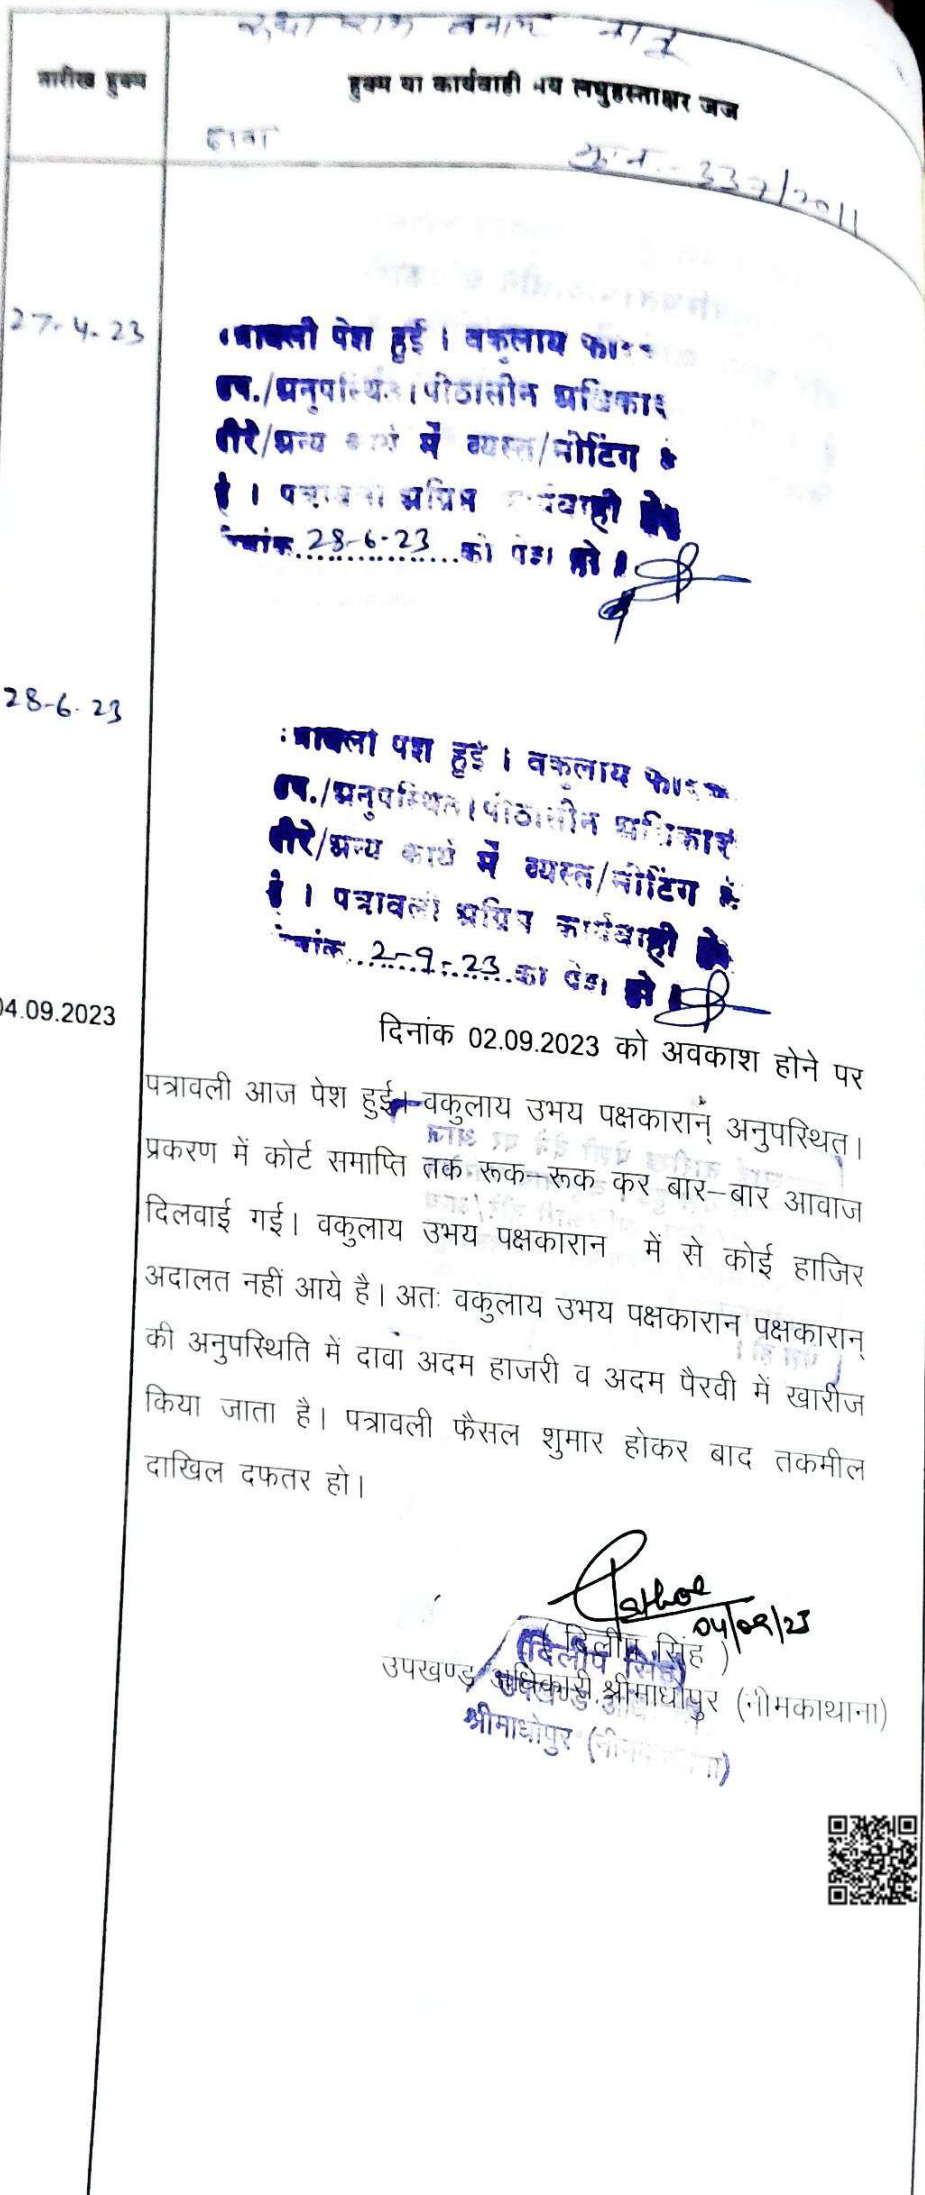 बनाम
तारीख हुक्म
हुक्म या कार्यवाही मय लघुहस्ताक्षर जज
दावा
मु.न.-337/2011
27-4-23
पत्रावली पेश हुई । वकुलाय
उप./अनुपस्थित। पीठासीन अधिकारी
दौरे/अन्य कार्य में व्यस्त/मीटिंग
है । पत्रावली अग्रिम कार्यवाही हेतु
दिनांक..28-6-23..को पेश हो ।
28-6-23
पत्रावली पेश हुई । वकुलाय
उप./अनुपस्थित। पीठासीन अधिकारी
दौरे/अन्य कार्य में व्यस्त/मीटिंग
है । पत्रावली अग्रिम कार्यवाही हेतु
दिनांक..2-9-23..को पेश हो ।
04.09.2023
दिनांक 02.09.2023 को अवकाश होने पर
पत्रावली आज पेश हुई। वकुलाय उभय पक्षकारान् अनुपस्थित।
प्रकरण में कोर्ट समाप्ति तक रूक–रूक कर बार–बार आवाज
दिलवाई गई। वकुलाय उभय पक्षकारान में से कोई हाजिर
अदालत नहीं आये है। अतः वकुलाय उभय पक्षकारान पक्षकारान्
की अनुपस्थिति में दावा अदम हाजरी व अदम पैरवी में खारीज
किया जाता है। पत्रावली फैसल शुमार होकर बाद तकमील
दाखिल दफतर हो।
04/09/23
( दिलीप सिंह )
(दिलीप सिंह)
उपखण्ड अधिकारी, श्रीमाधोपुर (नीमकाथाना)
उपखण्ड
श्रीमाधोपुर (नीमकाथाना)